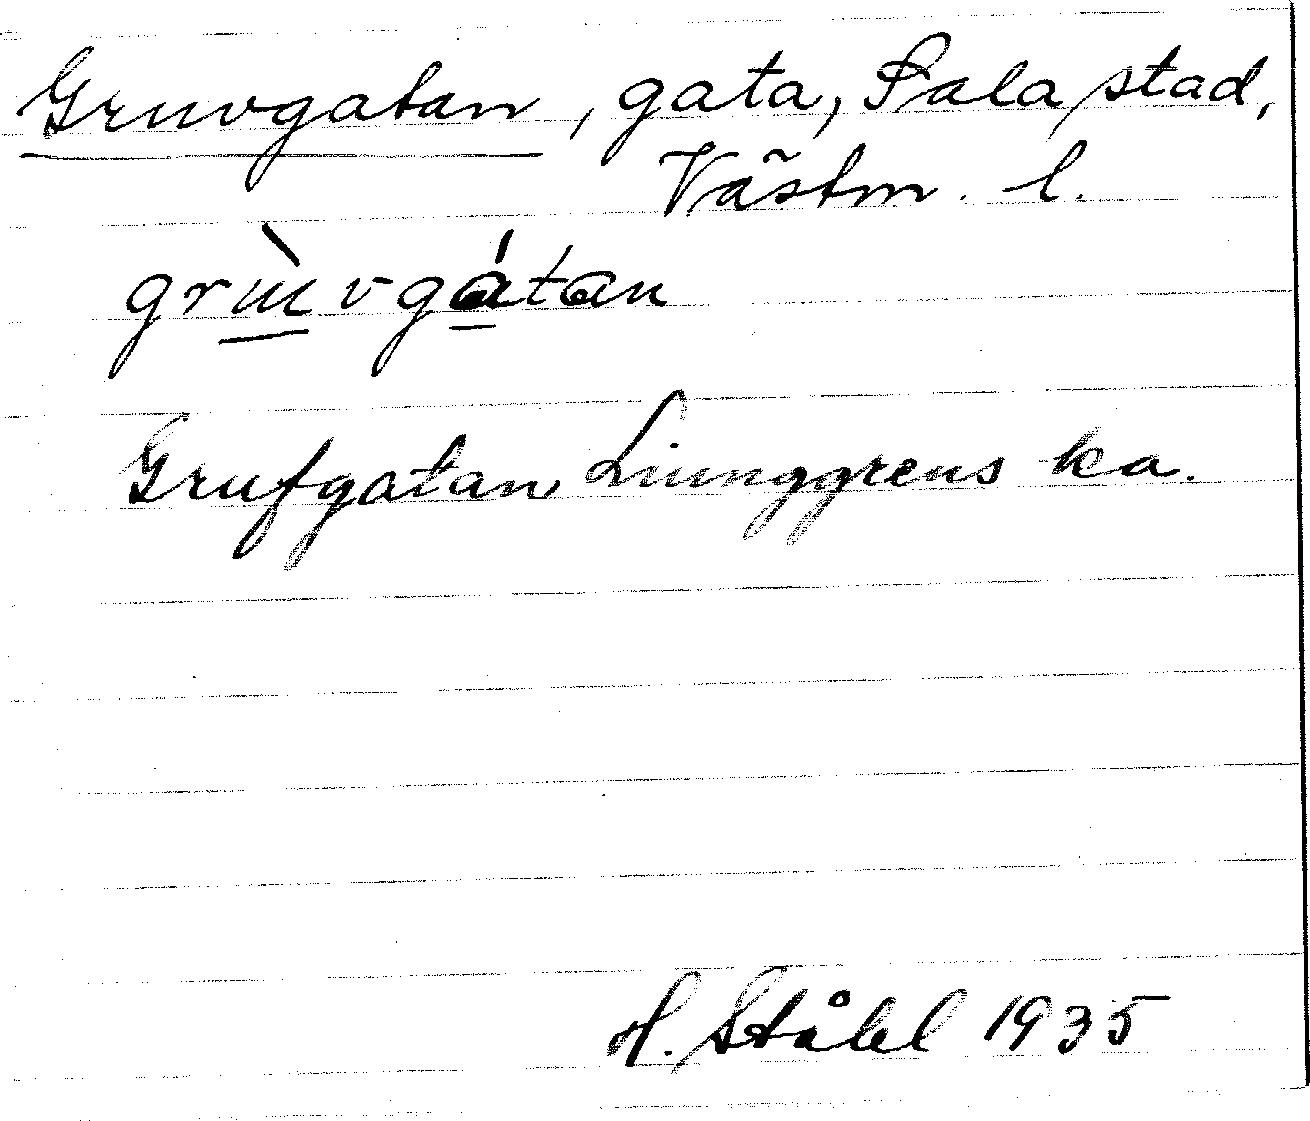 Gruvgatan, gata, Sala stad,
Västm. l.
grùvgátan
Grufgatan Liunggrens ka.
H. Ståhl 1935